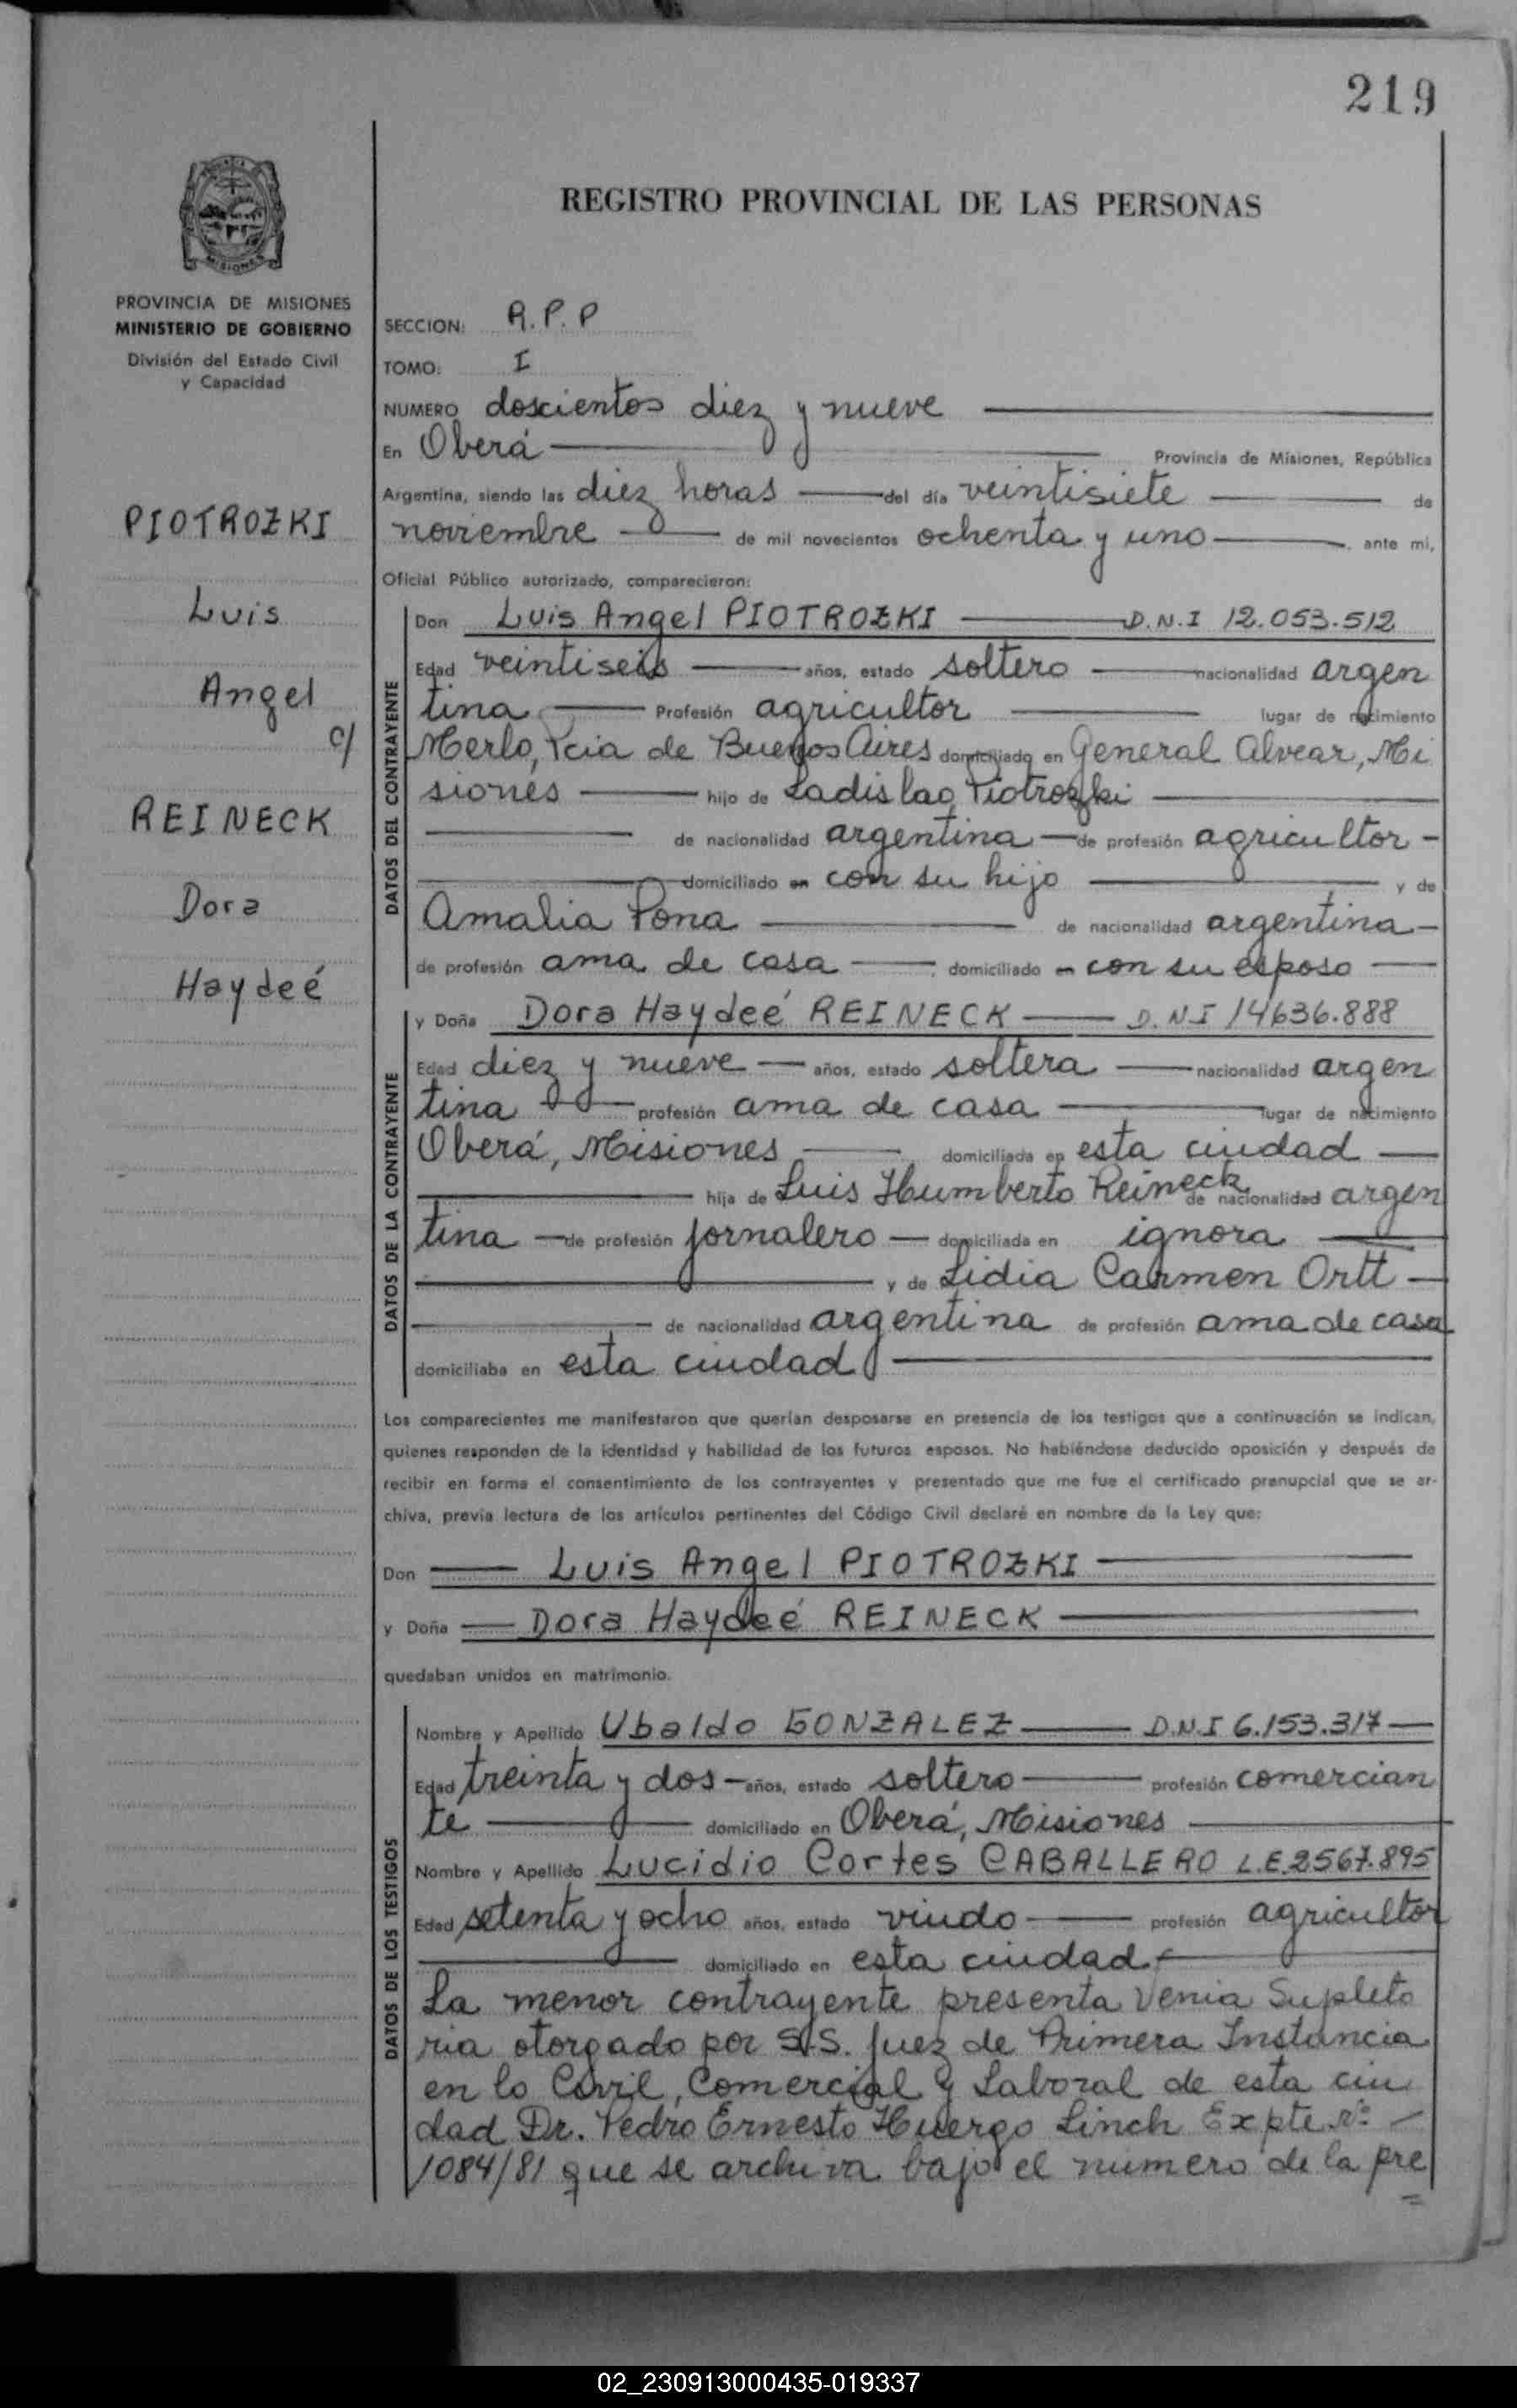 219
REGISTRO PROVINCIAL DE LAS PERSONAS
PROVINCIA DE MISIONES
MINISTERIO DE GOBIERNO
División del Estado Civil
y Capacidad
PIOTROZKI
Luis
Angel
c/
REINECK
Dora
Haydeé
SECCION: R.P.P
TOMO: I
NUMERO doscientos diez y nueve
En Oberá Provincia de Misiones, República
Argentina, siendo las diez horas del día veintisiete de
noviembre de mil novecientos ochenta y uno, ante mi,
Oficial Público autorizado, comparecieron:
DATOS DEL CONTRAYENTE
Don Luis Angel PIOTROZKI D.N.I 12.053.512
Edad veintiseis años, estado soltero nacionalidad argen
tina Profesión agricultor lugar de nacimiento
Merlo, Pcia de Buenos Aires domiciliado en General Alvear, Mi
siones hijo de Ladislao Piotrozki
de nacionalidad argentina de profesión agricultor
domiciliado en con su hijo y de
Amalia Pona de nacionalidad argentina
de profesión ama de casa domiciliado en con su esposo
DATOS DE LA CONTRAYENTE
y Doña Dora Haydeé REINECK D.N.I 14636.888
Edad diez y nueve años, estado soltera nacionalidad argen
tina profesión ama de casa lugar de nacimiento
Oberá, Misiones domiciliada en esta ciudad
hija de Luis Humberto Reineck de nacionalidad argen
tina de profesión jornalero domiciliada en ignora
y de Lidia Carmen Ortt
de nacionalidad argentina de profesión ama de casa
domiciliaba en esta ciudad
Los comparecientes me manifestaron que querían desposarse en presencia de los testigos que a continuación se indican,
quienes responden de la identidad y habilidad de los futuros esposos. No habiéndose deducido oposición y después de
recibir en forma el consentimiento de los contrayentes y presentado que me fue el certificado prenupcial que se ar-
chiva, previa lectura de los artículos pertinentes del Código Civil declaré en nombre de la Ley que:
Don Luis Angel PIOTROZKI
y Doña Dora Haydeé REINECK
quedaban unidos en matrimonio.
DATOS DE LOS TESTIGOS
Nombre y Apellido Ubaldo GONZALEZ D.N.I 6.153.317
Edad treinta y dos años, estado soltero profesión comercian
te domiciliado en Oberá, Misiones
Nombre y Apellido Lucidio Cortes CABALLERO L.E.2567.895
Edad setenta y ocho años, estado viudo profesión agricultor
domiciliado en esta ciudad.
La menor contrayente presenta Venia Supleto
ria otorgado por S.S. Juez de Primera Instancia
en lo Civil, Comercial y Laboral de esta ciu
dad Dr. Pedro Ernesto Huergo Linch Expte nº
1084/81 que se archiva bajo el numero de la pre
02_230913000435-019337